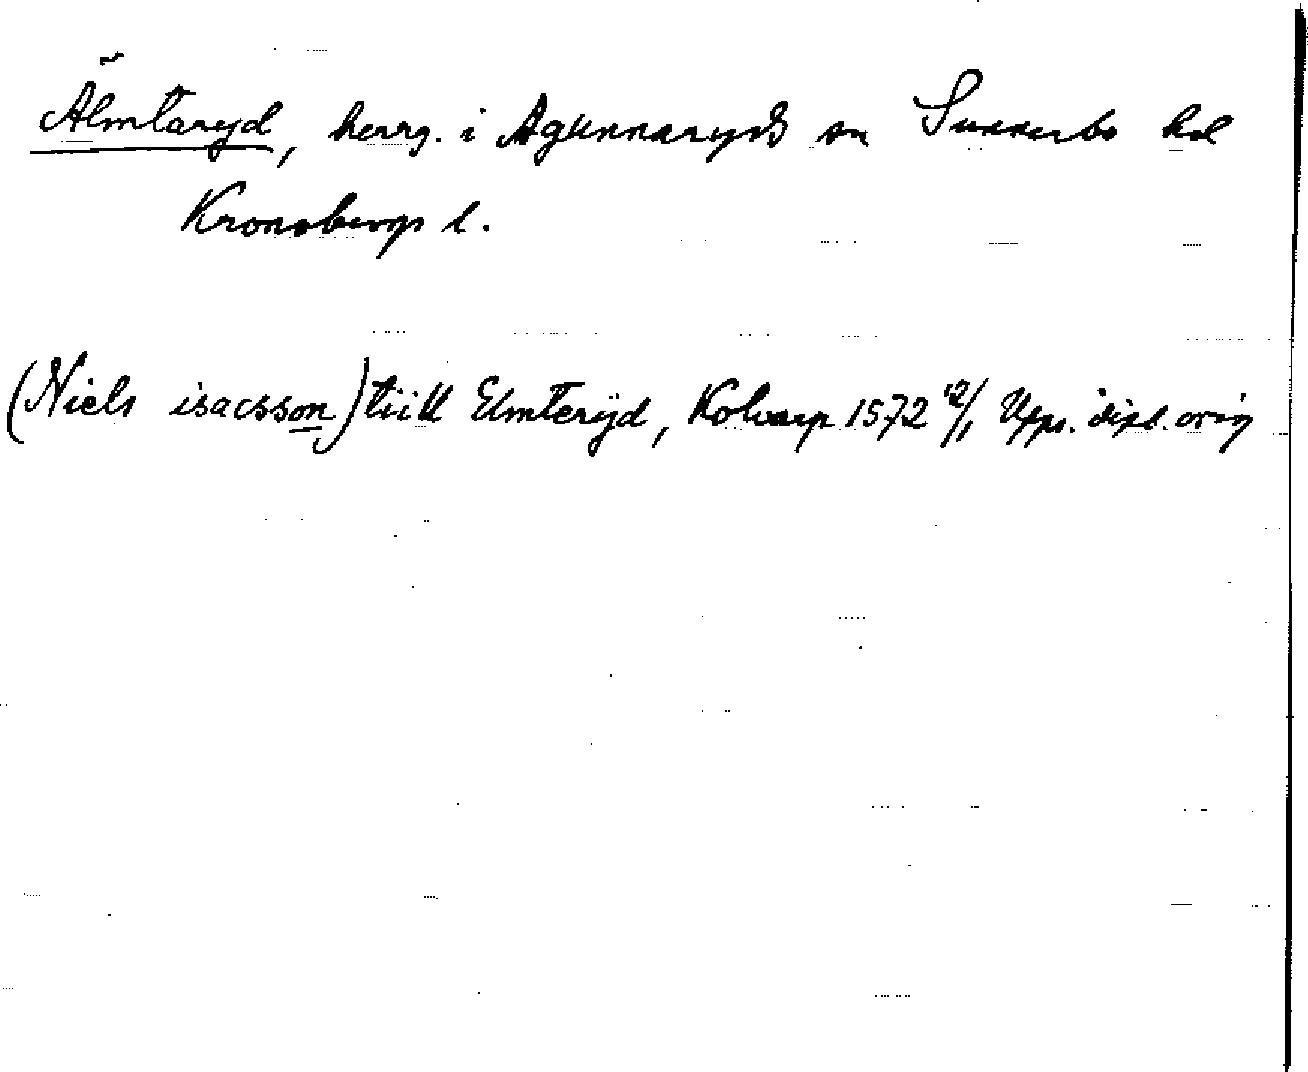 Älmtaryd, herrg. i Agunnaryds sn Sunnerbo hd
Kronobergs l.
(Niels isacsson) tiill Elmterÿd, Kolvarp 1572 12/1 Upps. dipl. orig